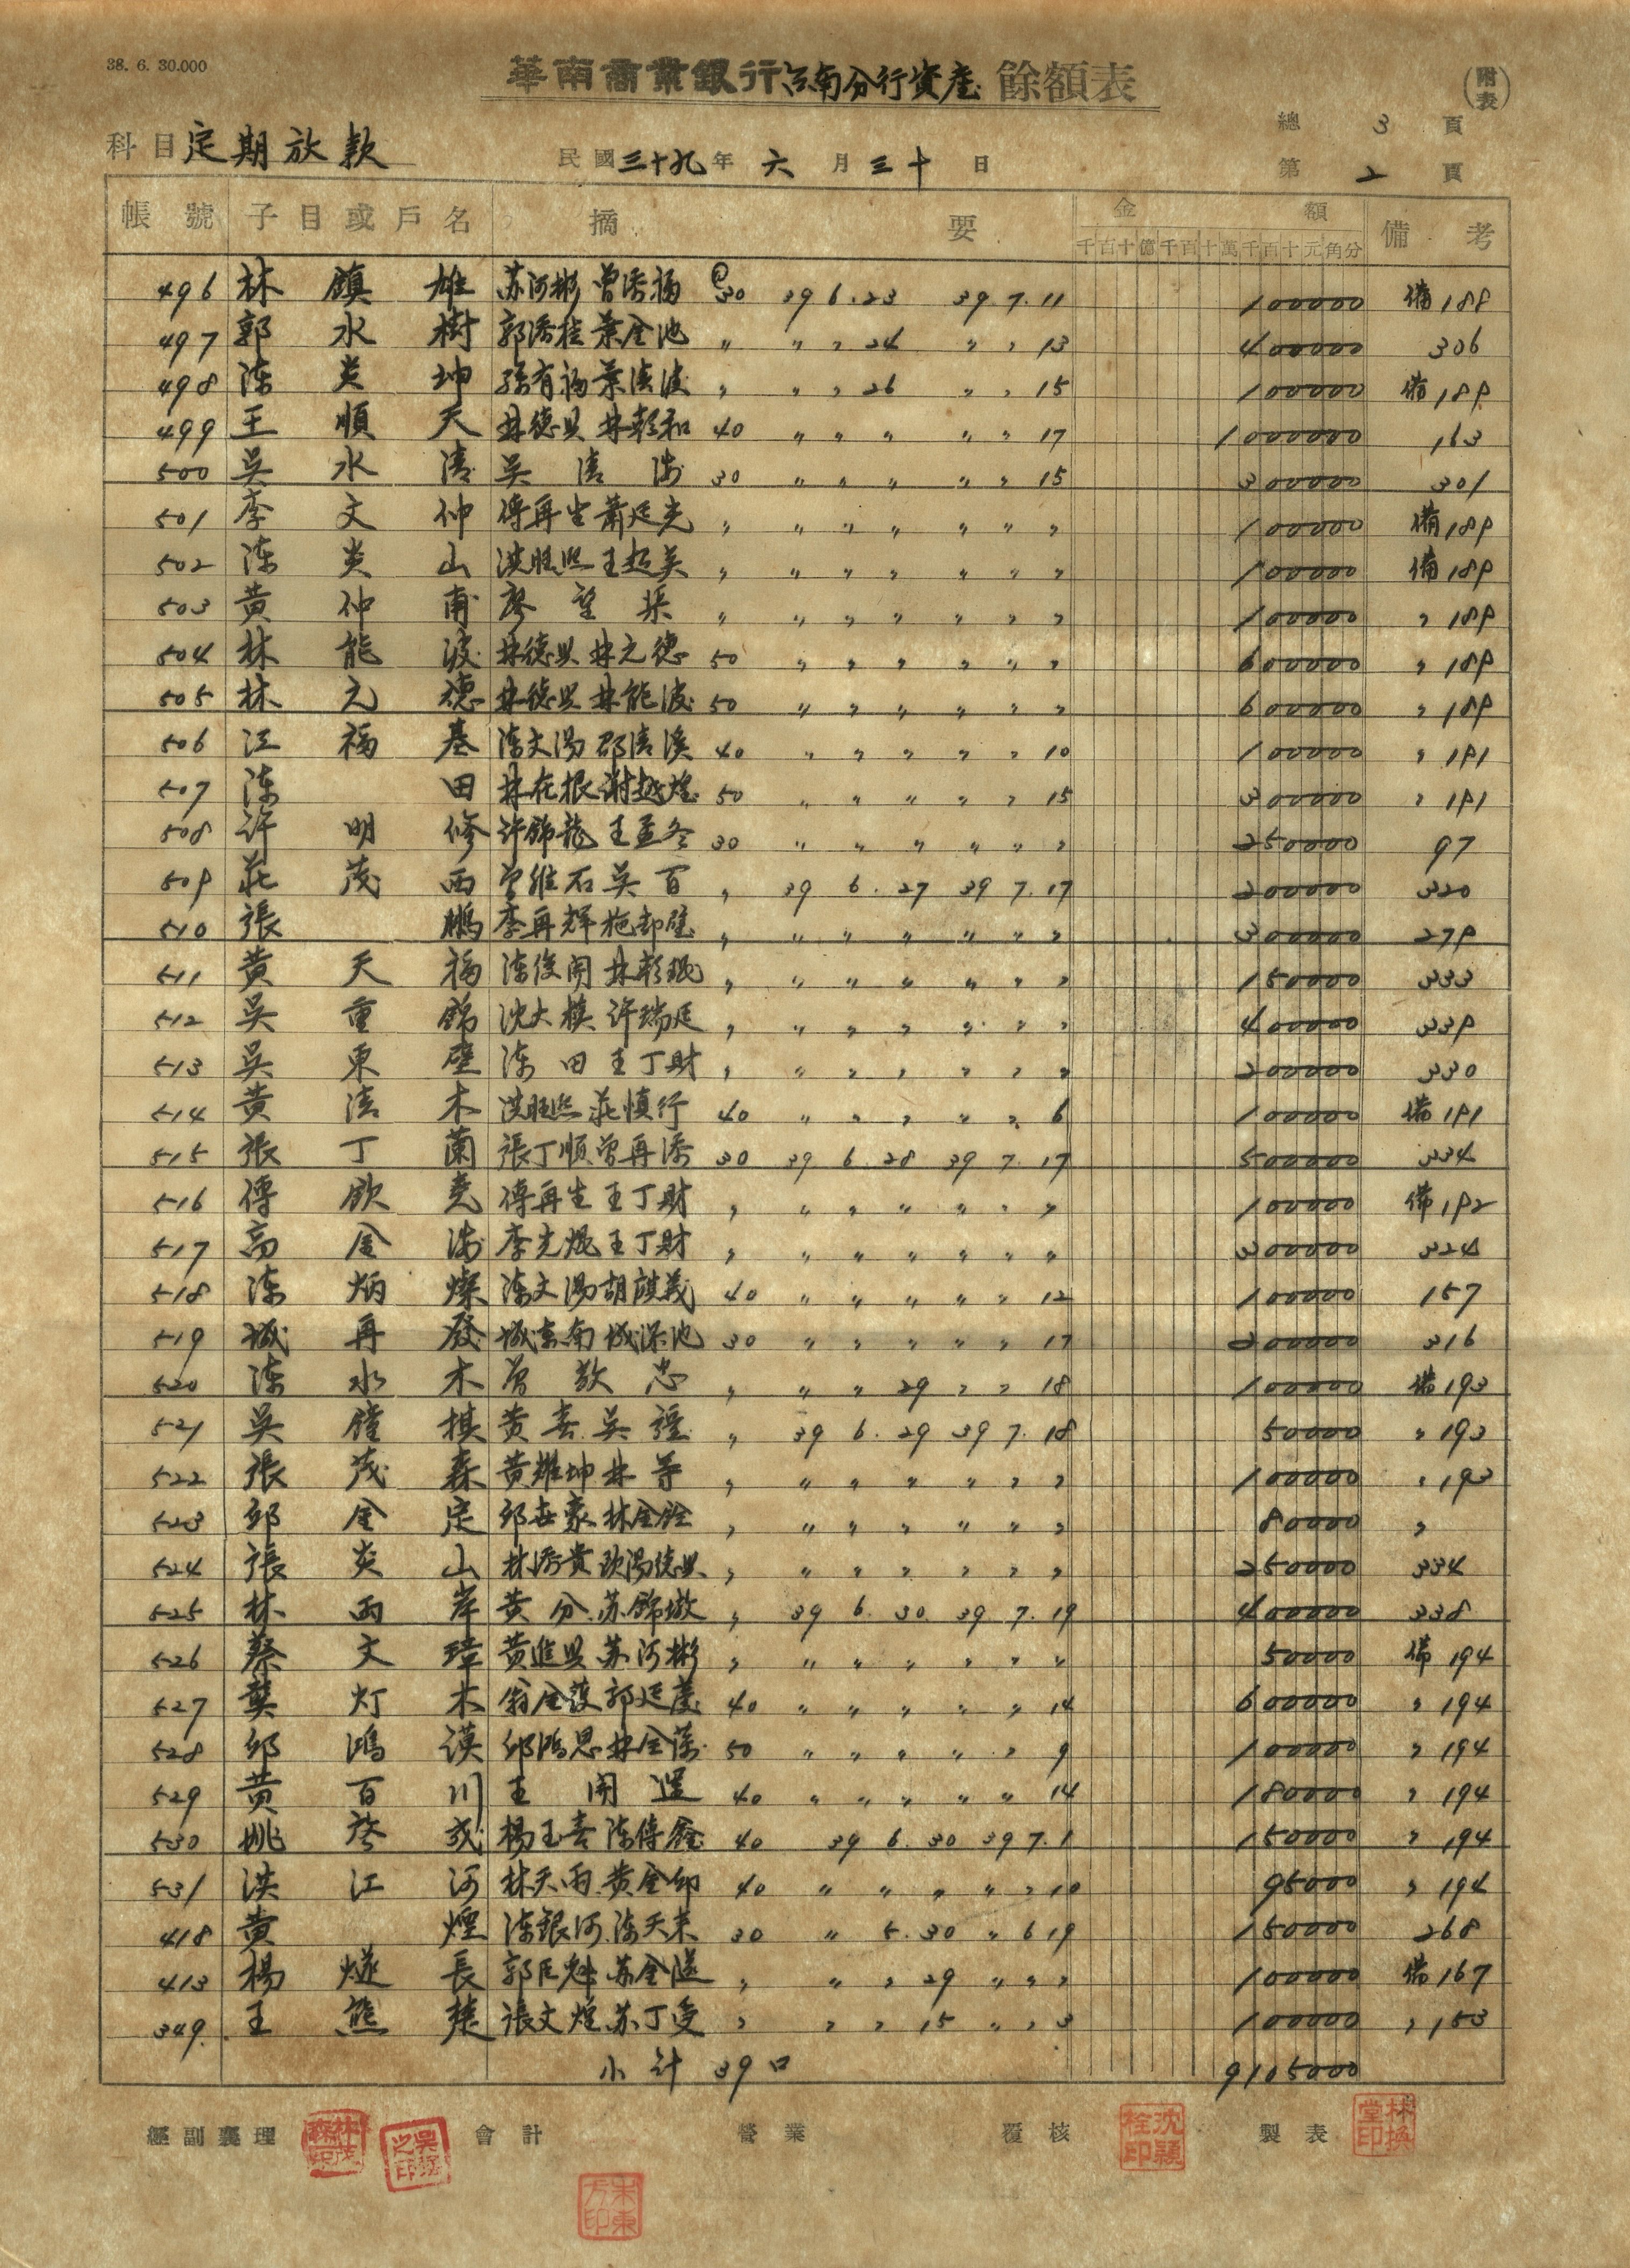 38. 6. 30.000
華南商業銀行台南分行資產 餘額表
(附表)
總 3 頁
科目 定期放款 民國 三十九 年 六 月 三十 日
第 2 頁
帳號 子目或戶名 摘要 金額 備考
千百十億千百十萬千百十元角分
496 林鎮雄 苏河彬 曾添福 @30 39 6.23 39 7.11 100000 備188
497 郭水樹 郭添桂 葉金池 〃 〃 〃 24 〃 〃 13 400000 306
498 陳炎坤 孫有福 葉清波 〃 〃 〃 26 〃 〃 15 100000 備189
499 王順天 林德具 林乾和 40 〃 〃 〃 〃 〃 17 1000000 163
500 吳水清 吳清海 30 〃 〃 〃 〃 〃 15 300000 301
501 李文仲 傅再生 蕭廷光 〃 〃 〃 〃 〃 〃 〃 100000 備189
502 陳炎山 洪旺熙 王超英 〃 〃 〃 〃 〃 〃 〃 100000 備189
503 黃仲甫 廖望渠 〃 〃 〃 〃 〃 〃 〃 100000 〃 189
504 林能波 林德具 林元德 50 〃 〃 〃 〃 〃 〃 600000 〃 189
505 林元德 林德具 林能波 50 〃 〃 〃 〃 〃 〃 600000 〃 189
506 江福基 陳文湯 邵清溪 40 〃 〃 〃 〃 〃 10 100000 〃 191
507 陳田 林在根 謝越煌 50 〃 〃 〃 〃 〃 15 300000 〃 191
508 許明修 許錦龍 王孟冬 30 〃 〃 〃 〃 〃 〃 250000 97
509 莊茂西 曾維石 吳百 〃 39 6.27 39 7.17 200000 320
510 張鵬 李再輝 施却壁 〃 〃 〃 〃 〃 〃 〃 300000 279
511 黃天福 陳俊開 林乾琨 〃 〃 〃 〃 〃 〃 〃 150000 333
512 吳重錦 沈大模 許瑞廷 〃 〃 〃 〃 〃 〃 〃 400000 339
513 吳東壁 陳田 王丁財 〃 〃 〃 〃 〃 〃 〃 200000 330
514 黃清木 洪旺熙 莊慎行 40 〃 〃 〃 〃 〃 6 100000 備191
515 張丁蘭 張丁順 曾再添 30 39 6.28 39 7.17 500000 334
516 傅欽堯 傅再生 王丁財 〃 〃 〃 〃 〃 〃 〃 100000 備192
517 高金海 李光焜 王丁財 〃 〃 〃 〃 〃 〃 〃 300000 324
518 陳炳燦 陳文湯 胡祺義 40 〃 〃 〃 〃 〃 12 100000 157
519 城再發 城東南 城深池 30 〃 〃 〃 〃 〃 17 200000 316
520 陳水木 曾敬忠 〃 〃 〃 29 〃 〃 18 100000 備193
521 吳鐘棋 黃喜 吳謹 〃 39 6.29 39 7.18 50000 〃 193
522 張茂森 黃耀坤 林等 〃 〃 〃 〃 〃 〃 〃 100000 〃 193
523 邱金定 邱世豪 林金銓 〃 〃 〃 〃 〃 〃 〃 80000 〃
524 張炎山 林添貴 歐陽德具 〃 〃 〃 〃 〃 〃 〃 250000 334
525 林西岸 黃分 苏錦墩 〃 39 6.30 39 7.19 400000 338
526 蔡文璋 黃進具 苏河彬 〃 〃 〃 〃 〃 〃 〃 50000 備194
527 龔灯木 翁金護 郭廷茂 40 〃 〃 〃 〃 〃 14 600000 〃 194
528 邱鴻謨 邱鴻恩 林金藻 50 〃 〃 〃 〃 〃 9 100000 〃 194
529 黃百川 王開選 40 〃 〃 〃 〃 〃 14 180000 〃 194
530 姚啓或 楊玉喜 陳傳鑫 40 39 6.30 39 7.1 150000 〃 194
531 洪江河 林天雨 黃金印 40 〃 〃 〃 〃 〃 10 95000 〃 194
418 黃煙 陳銀河 陳天來 30 〃 5.30 〃 6 19 150000 268
413 楊燧長 郭臣魁 苏金隧 〃 〃 〃 29 〃 〃 〃 100000 備167
349 王熊楚 張文煌 苏丁受 〃 〃 〃 15 〃 〃 3 100000 〃 153
小計 39口 9105000
經副襄理 會計 營業 覆核 製表
林茂森印
沈穎栓印
林換堂印
朱東方印